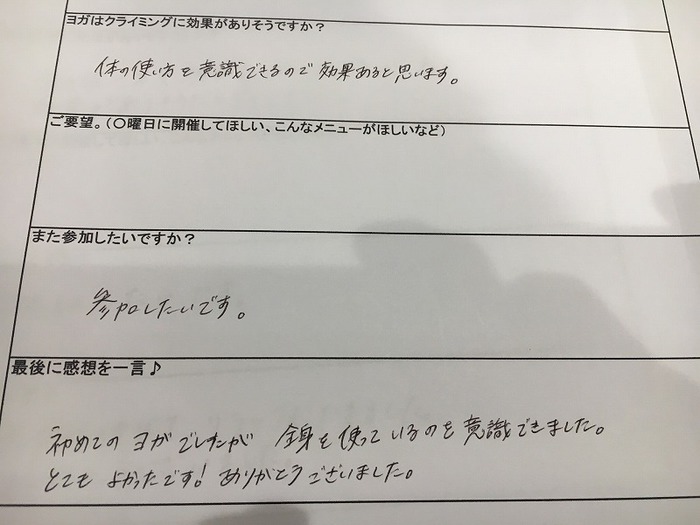 ヨガはクライミングに効果がありそうですか?
体の使い方を意識できるので効果あると思います。
ご要望。(〇曜日に開催してほしい、こんなメニューがほしいなど)
また参加したいですか?
参加したいです。
最後に感想を一言♪
初めてのヨガでしたが 全身を使っているのを意識できました。
とてもよかったです!ありがとうございました。